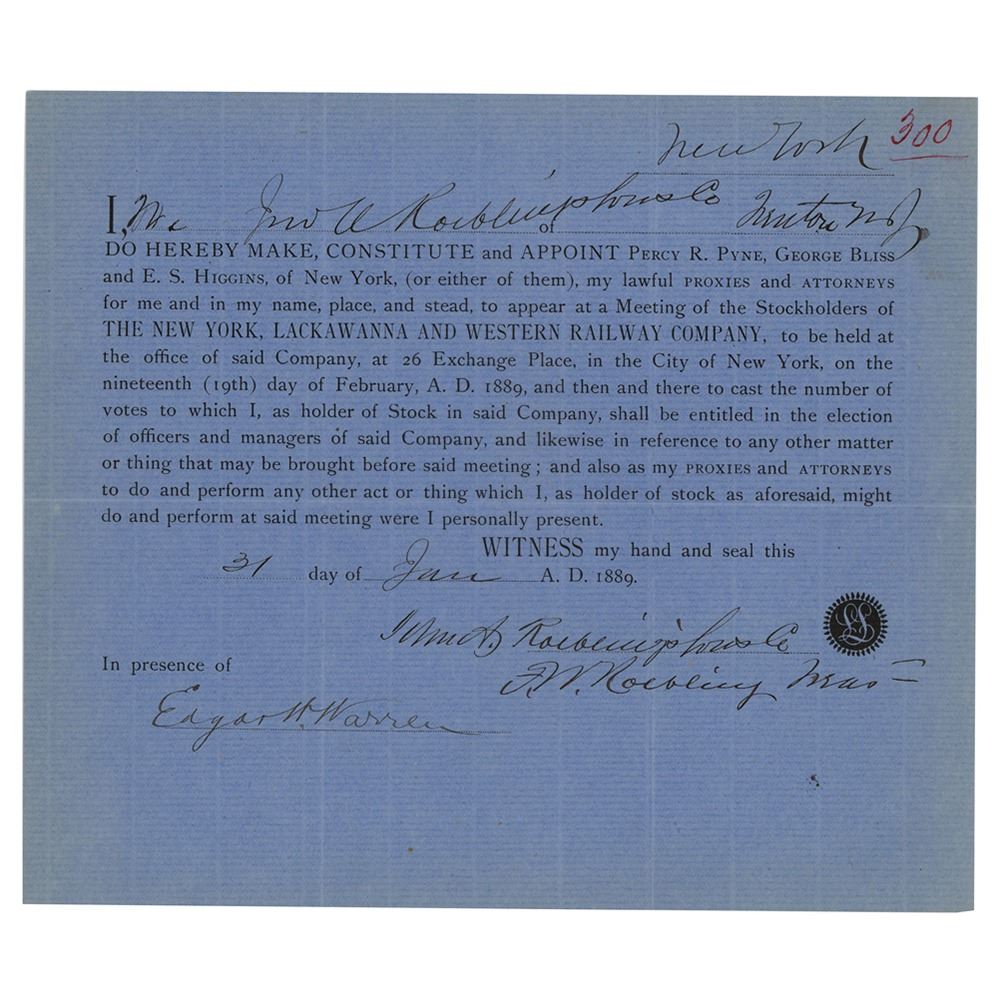 New York 300
I, We Jno A Roebling's Sons Co of Trenton N J
DO HEREBY MAKE, CONSTITUTE and APPOINT PERCY R. PYNE, GEORGE BLISS
and E. S. HIGGINS, of New York, (or either of them), my lawful PROXIES and ATTORNEYS
for me and in my name, place, and stead, to appear at a Meeting of the Stockholders of
THE NEW YORK, LACKAWANNA AND WESTERN RAILWAY COMPANY, to be held at
the office of said Company, at 26 Exchange Place, in the City of New York, on the
nineteenth (19th) day of February, A. D. 1889, and then and there to cast the number of
votes to which I, as holder of Stock in said Company, shall be entitled in the election
of officers and managers of said Company, and likewise in reference to any other matter
or thing that may be brought before said meeting; and also as my PROXIES and ATTORNEYS
to do and perform any other act or thing which I, as holder of stock as aforesaid, might
do and perform at said meeting were I personally present.
WITNESS my hand and seal this
31 day of Jan A. D. 1889.
John A Roebling's Sons Co LS
In presence of
F. W. Roebling Treas
Edgar W. Warren